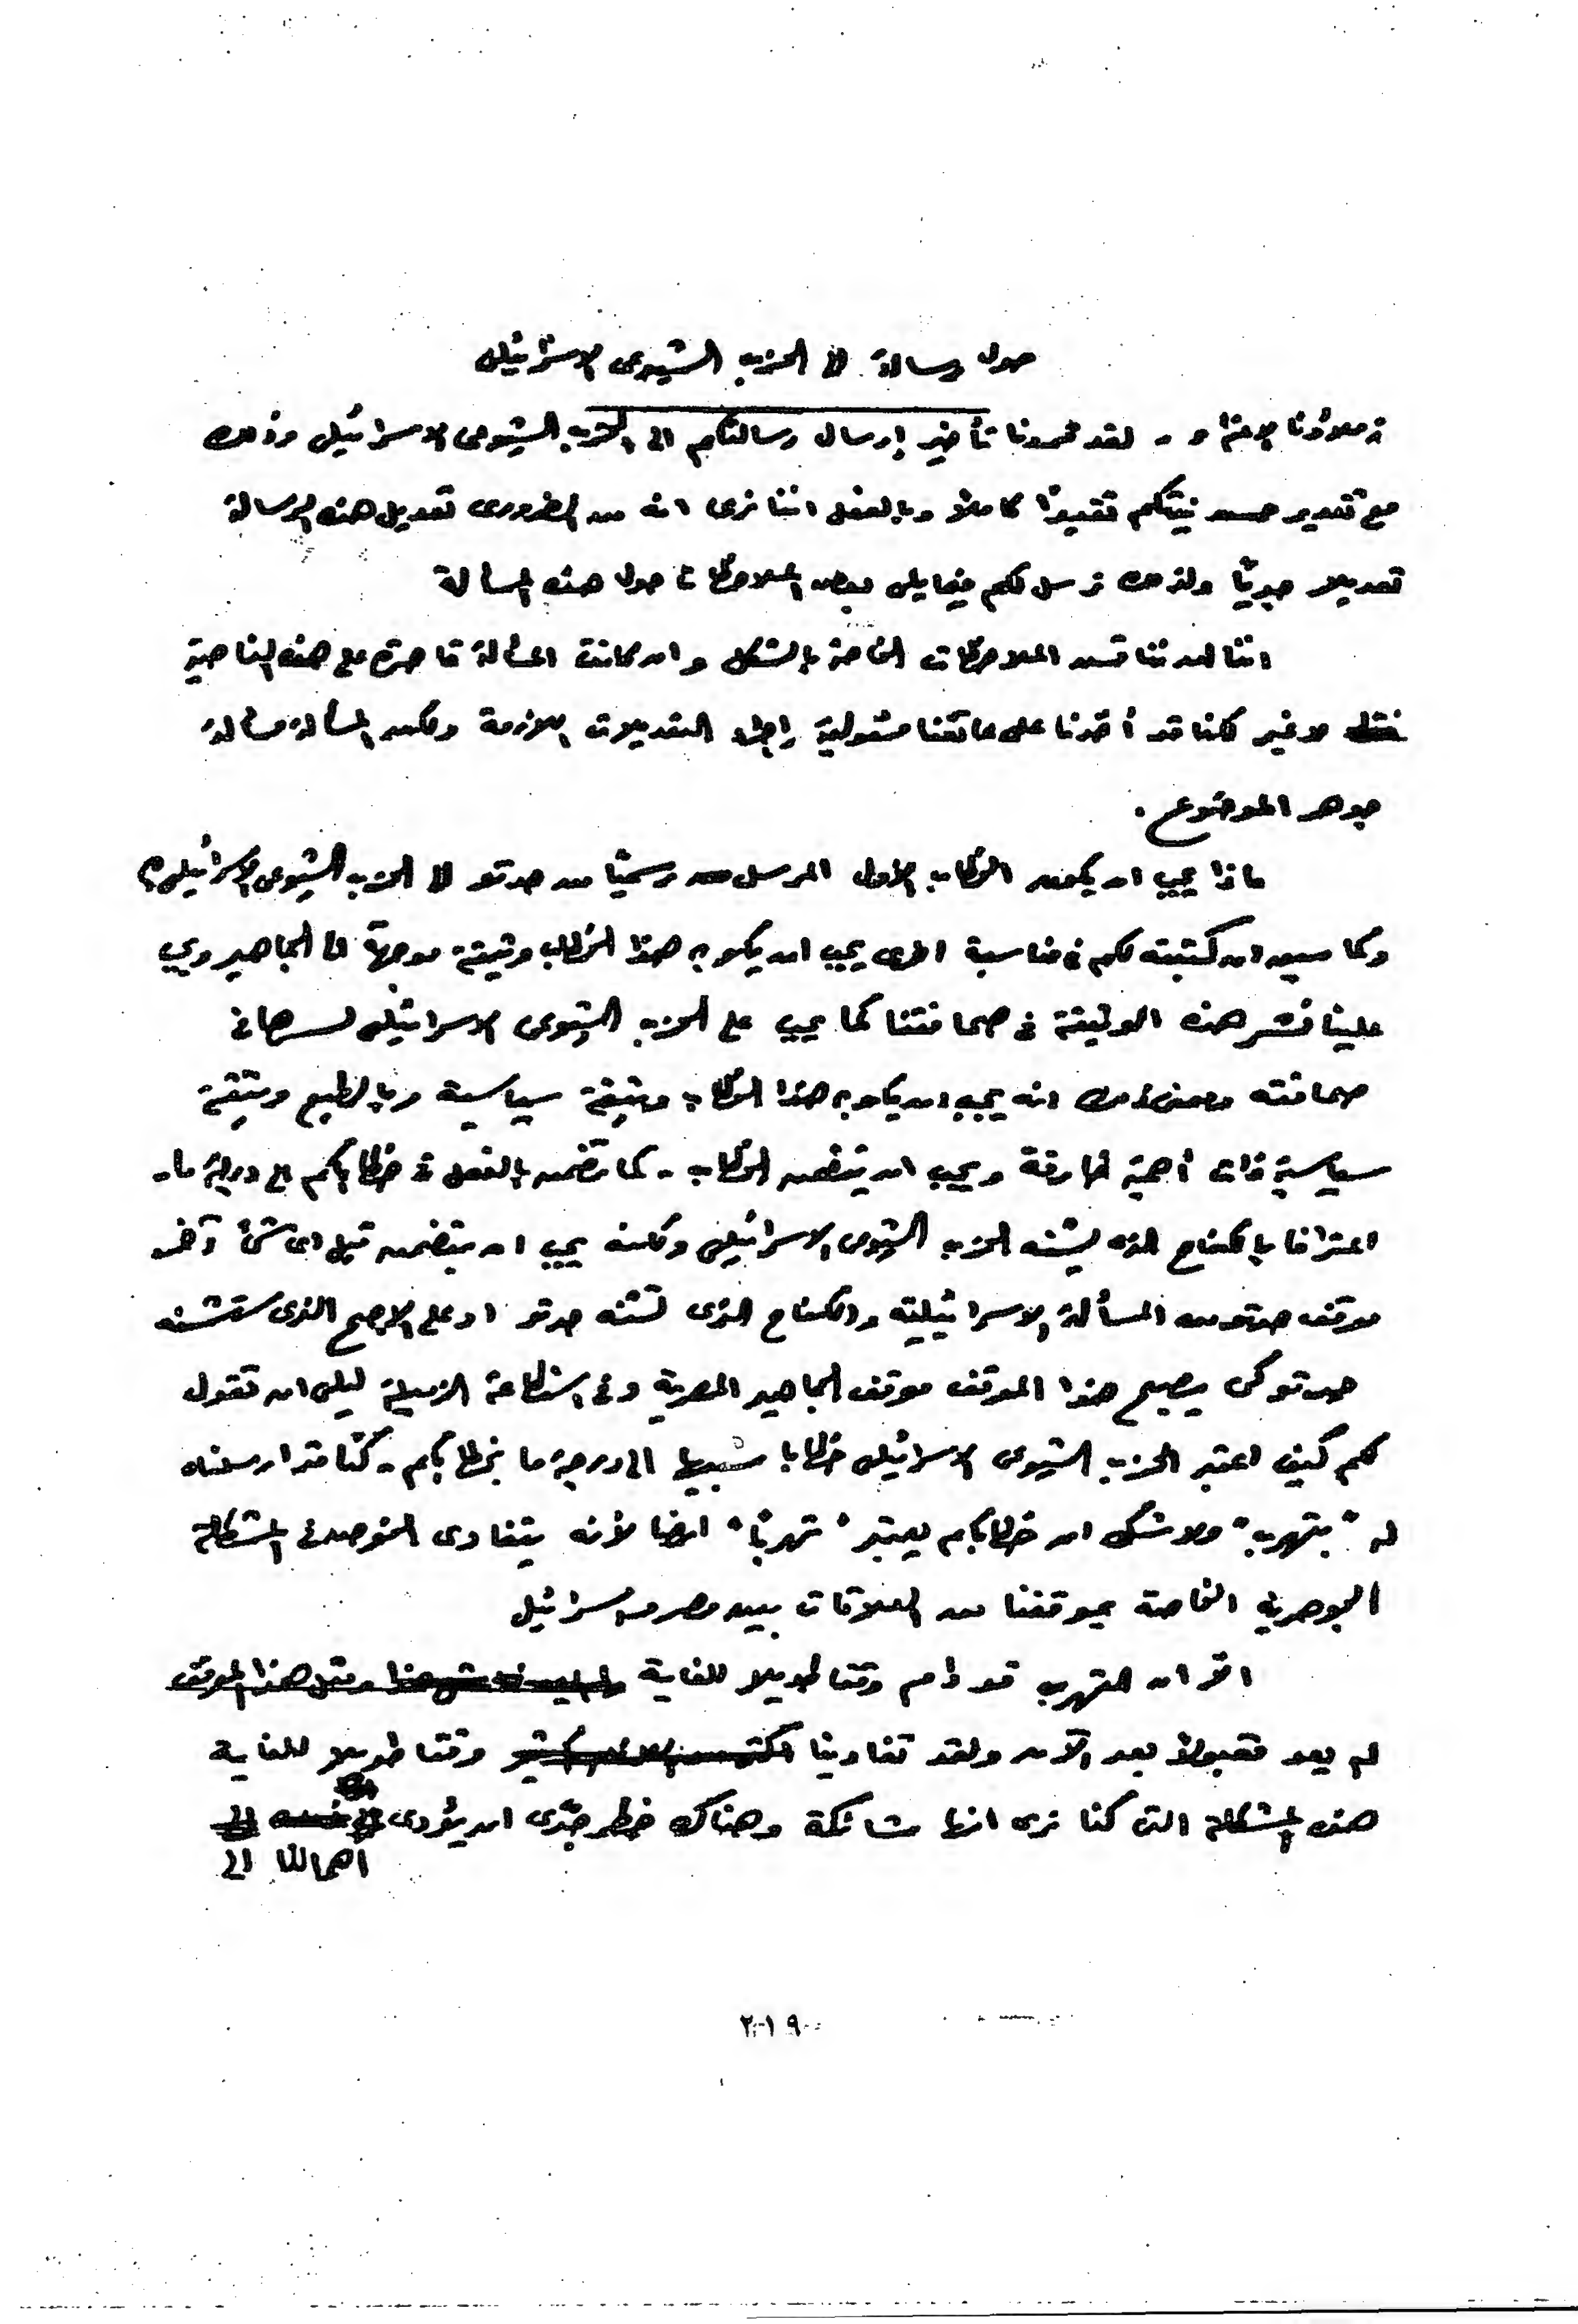 حول رسالة الى الحزب الشيوعى الاسرائيلى
زملاؤنا الاعزاء - لقد قررنا تأخير إرسال رسالتكم الى الحزب الشيوعى الاسرائيلى وذلك
مع تقدير حسن نيتكم تقديرًا كاملا وبالفعل اننا نرى انه من الضرورى تعديل هذه الرسالة
تعديلا جديًا ولذلك نرسل لكم فيما يلى بعض الملاحظات حول هذه المسألة
اننا لن نناقش الملاحظات الخاصة بالشكل وان كانت المسألة قاصرة على هذه الناحية
فقط لا غير كنا قد أخذنا على عاتقنا مسئولية إجراء التعديلات اللازمة ولكن المسألة مسألة
جوهر الموضوع .
ماذا يجب ان يكون الخطاب الأول المرسل رسميًا من حدتو الى الحزب الشيوعى الاسرائيلى؟
وكما سبق ان كتبته لكم فى مناسبة اخرى يجب ان يكون هذا الخطاب وثيقة موجهة الى الجماهير ويجب
علينا نشر هذه الوثيقة فى صحافتنا كما يجب على الحزب الشيوعى الاسرائيلى نشرها فى
صحافته ومعنى ذلك انه يجب ان يكون هذا الخطاب وثيقة سياسية وبالطبع وثيقة
سياسية ذات أهمية خارقة ويجب ان يتضمن الخطاب - كما تضمن بالفعل فى خطابكم الى درجة ما -
اعترافا بالكفاح الذى يشنه الحزب الشيوعى الاسرائيلى ولكنه يجب ان يتضمن قبل اى شئ آخر
موقف حدتو من المسألة الاسرائيلية والكفاح الذى تشنه حدتو او على الاصح الذى ستشنه
حدتو كى يصبح هذا الموقف موقف الجماهير المصرية وفى استطاعة الزميلة ليلى ان تقول
لكم كيف اعتبر الحزب الشيوعى الاسرائيلى خطابا شبيها الى درجة ما بخطابكم - كنا قد ارسلناه
له "بتهرب" ولا شك ان خطابكم يعتبر "تهربًا" ايضا لأنه يتفادى الخوض فى المشكلة
الجوهرية الخاصة بموقفنا من العلاقات بين مصر واسرائيل
الا ان التهرب قد دام وقتا طويلا للغاية ومثل هذا الموقف
لم يعد مقبولا بعد الآن ولقد تفادينا وقتا طويلا للغاية
هذه المشكلة التى كنا نرى انها شائكة وهناك خطر جدّى ان يؤدى
اهمالنا الى
٢٠١٩